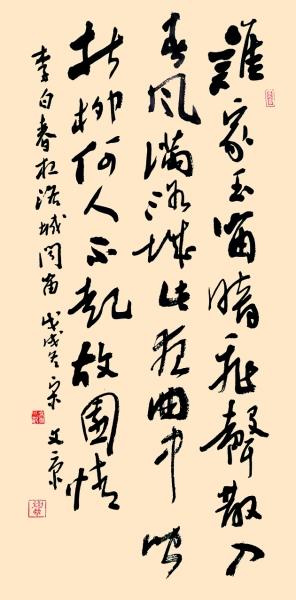 誰家玉笛暗飛聲散入
春風滿洛城此夜曲中聞
折柳何人不起故園情
李白春夜洛城聞笛 戊戌冬 宋文京